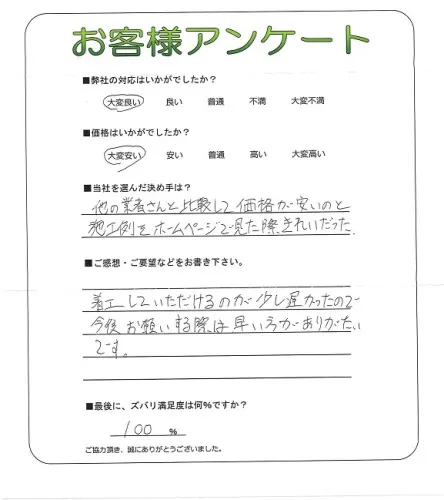 お客様アンケート
■弊社の対応はいかがでしたか？
大変良い 良い 普通 不満 大変不満
■価格はいかがでしたか？
大変安い 安い 普通 高い 大変高い
■当社を選んだ決め手は？
他の業者さんと比較して価格が安いのと
施工例をホームページで見た際きれいだった。
■ご感想・ご要望などをお書き下さい。
着工していただけるのが少し遅かったので
今後お願いする際は早い方がありがたい
です。
■最後に、ズバリ満足度は何%ですか？
100 %
ご協力頂き、誠にありがとうございました。